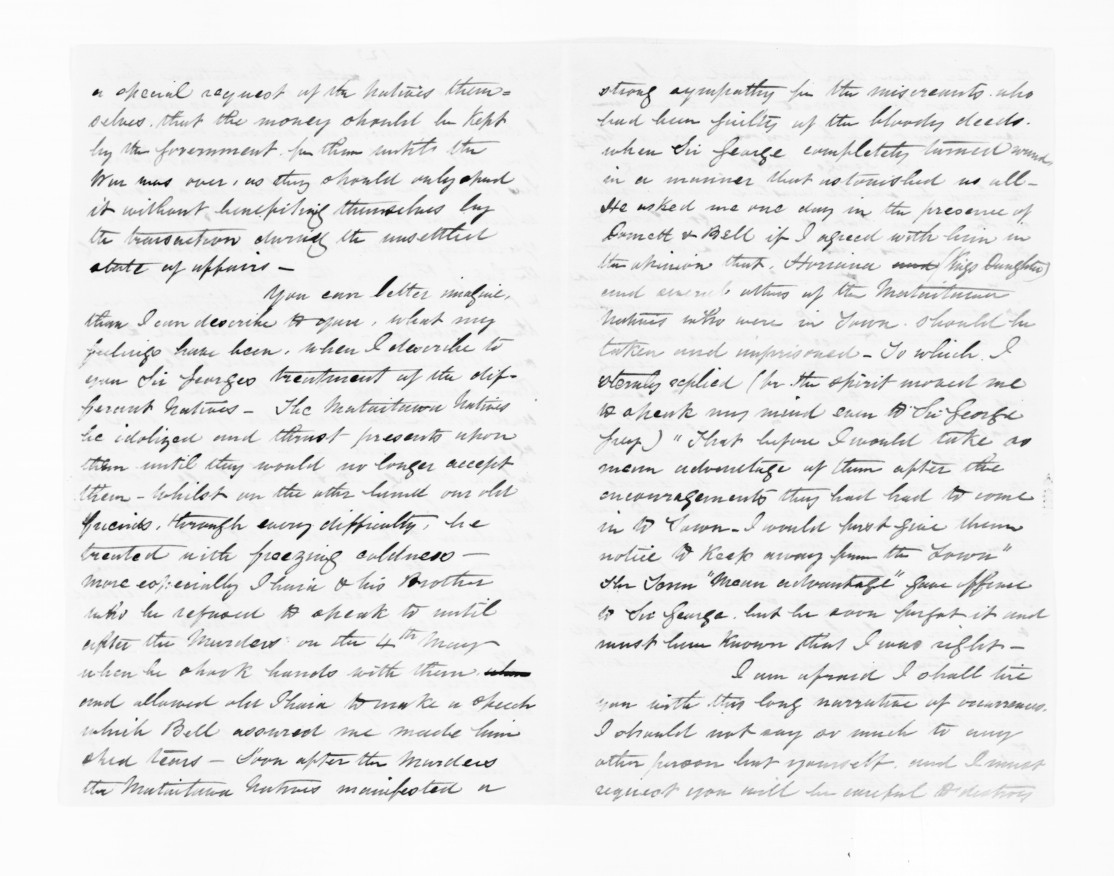 a special request of the Natives them=
selves. that the money should be kept
by the Government. for them until the
War was over, as they should only spend
it without benefiting themselves by
the transaction during the unsettled
state of affairs —
You can better imagine,
than I can describe to you, what my
feelings have been, when I describe to
you Sir Georges treatment of the dif-
ferent Natives — The Mataitawa Natives
he idolized and thrust presents upon
them until they would no longer accept
them — Whilst on the other hand our old
friends, through every difficulty, he
treated with freezing coldness —
more especially Ihaia & his Brother
who he refused to speak to until
after the Murders on the 4th May
when he shook hands with them
and allowed old Ihaia to make a speech
which Bell assured me made him
shed tears — Soon after the Murders
the Mataitawa Natives manifested a
strong sympathy for the miscreants who
had been guilty of the bloody deeds.
when Sir George completely turned round
in a manner that astonished us all —
He asked me one day in the presence of
Domett & Bell if I agreed with him in
the opinion that, Horiana and (Kings Daughter)
and several others of the Mataitawa
Natives who were in Town. should be
taken and imprisoned — To which, I
sternly replied (for the spirit moved me
to speak my mind even to Sir George
Grey) " That before I would take so
mean advantage of them after the
encouragements they had had to come
in to Town — I would first give them
notice to keep away from the Town"
The Term "Mean advantage" gave offence
to Sir George. but he soon forgot it and
must have known that I was right —
I am afraid I shall tire
you with this long narrative of occurrences.
I should not say so much to any
other person but yourself. and I must
request you will be careful to destroy